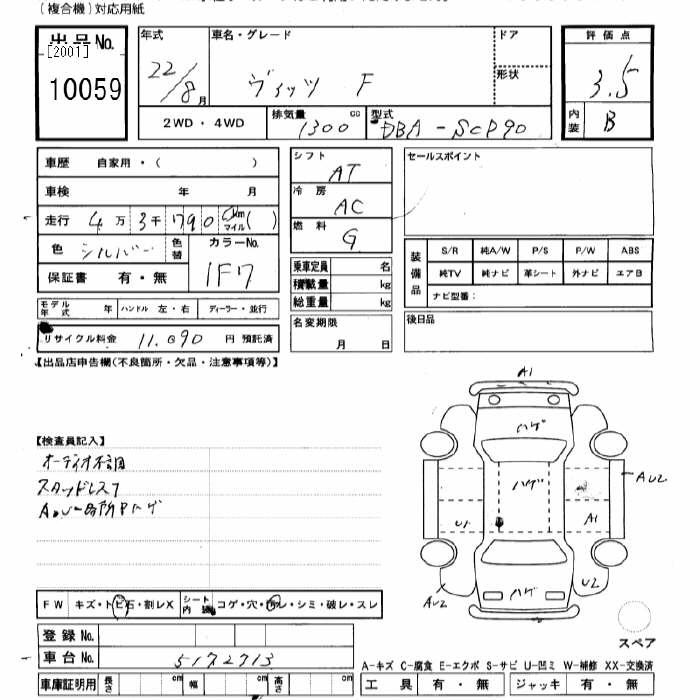 (複合機)対応用紙
出品No.
[2001]
10059
年式 22/8月
車名・グレード ヴィッツ F
ドア
形状
評価点 3.5
内装 B
2WD・4WD
排気量 1300cc
型式 DBA-SCP90
車歴 自家用・( )
車検 年 月
走行 4万3千790km マイル( )
色 シルバー 色替
カラーNo. 1F7
保証書 有・無
モデル年式 年 ハンドル 左・右 ディーラー・並行
リサイクル料金 11.090 円 預託済
シフト AT
冷房 AC
燃料 G
乗車定員 名
積載量 kg
総重量 kg
名変期限 月 日
セールスポイント
装備品
S/R 純A/W P/S P/W ABS
純TV 純ナビ 革シート 外ナビ エアB
ナビ型番:
後日品
【出品店申告欄(不良箇所・欠品・注意事項等)】
【検査員記入】
オーディオ不調
スタッドレス
FW キズ・トビ石・割レX シート内装 コゲ・穴・汚レ・シミ・破レ・スレ
登録No.
車台No. 5172713
車庫証明用 長さ cm 幅 cm 高さ cm
A1
ハゲ
ハゲ
AU2
U1
A1
ハゲ
AU2
U2
スペア
A-キズ C-腐食 E-エクボ S-サビ U-凹ミ W-補修 XX-交換済
工具 有・無 ジャッキ 有・無